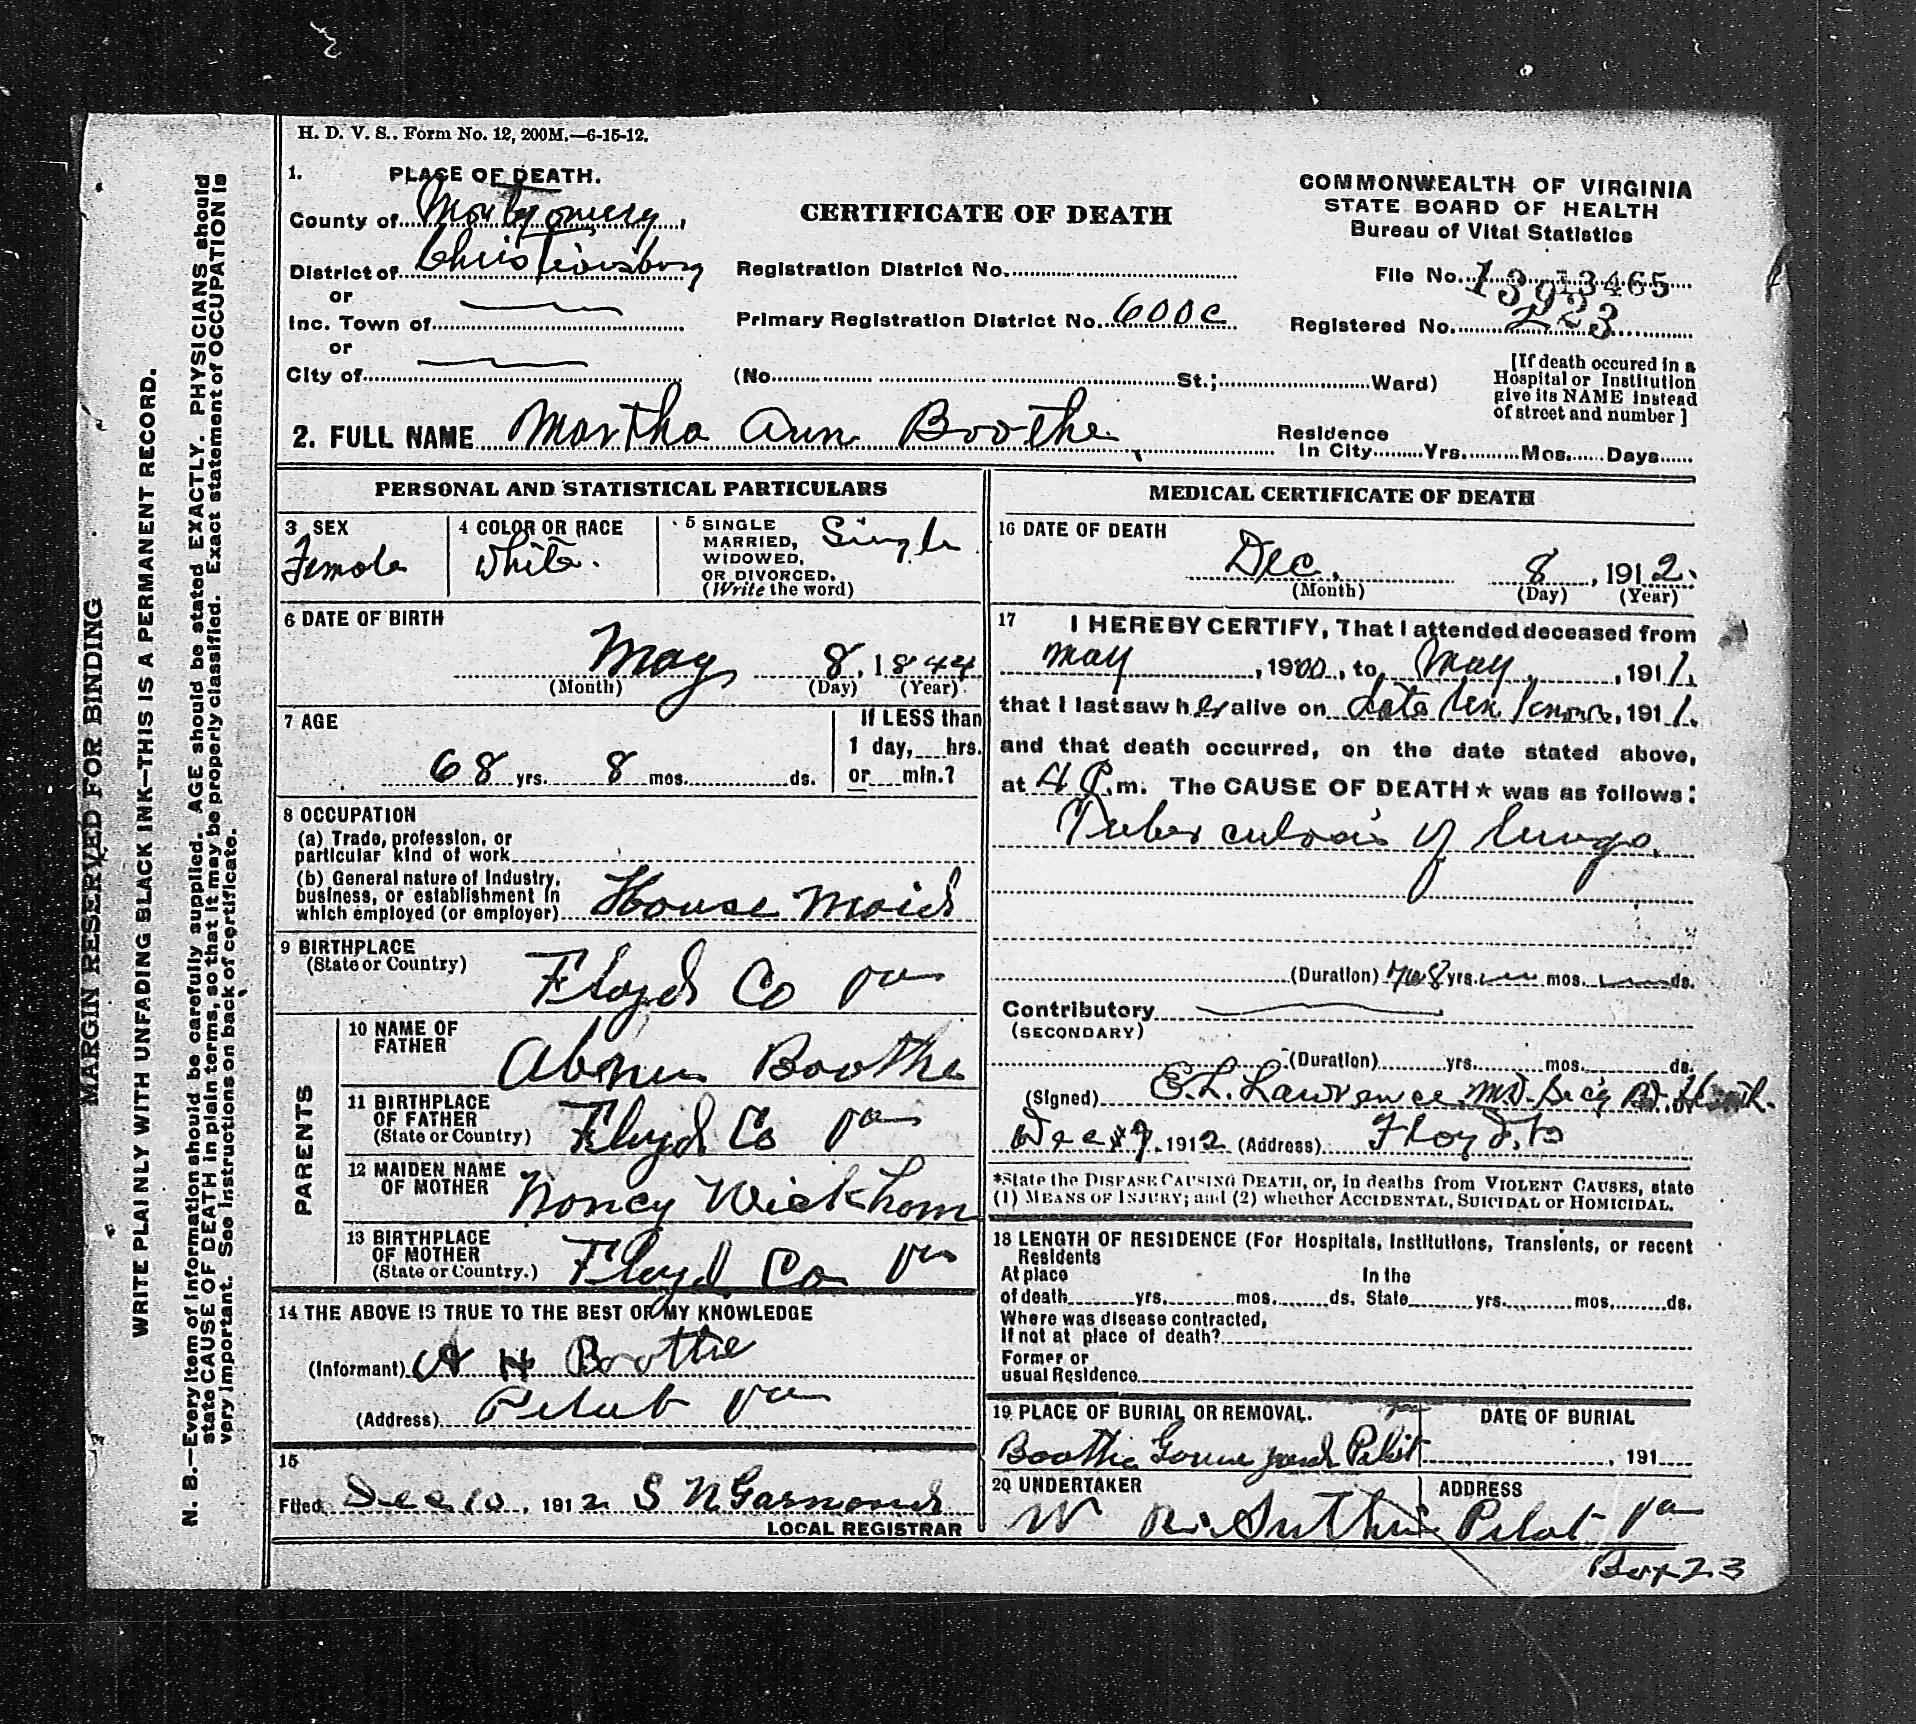 H. D. V. S., Form No. 12, 200M.—6-15-12.
1. PLACE OF DEATH.
County of Montgomery,
District of Christiansburg
or
Inc. Town of
or
City of
CERTIFICATE OF DEATH
Registration District No.
Primary Registration District No. 600c
(No. St.; Ward)
COMMONWEALTH OF VIRGINIA
STATE BOARD OF HEALTH
Bureau of Vital Statistics
File No. 13465
Registered No. 223
[If death occured in a
Hospital or Institution
give its NAME instead
of street and number]
2. FULL NAME Martha Ann Boothe
Residence
In City Yrs. Mos. Days
PERSONAL AND STATISTICAL PARTICULARS
3 SEX
Female
4 COLOR OR RACE
White.
5 SINGLE
MARRIED,
WIDOWED,
OR DIVORCED.
(Write the word)
Single
6 DATE OF BIRTH
May 8, 1844
(Month) (Day) (Year)
7 AGE
68 yrs. 8 mos. ds.
If LESS than
1 day, hrs.
or min.?
8 OCCUPATION
(a) Trade, profession, or
particular kind of work
(b) General nature of Industry,
business, or establishment in
which employed (or employer) House Maid
9 BIRTHPLACE
(State or Country)
Floyd Co Va
PARENTS
10 NAME OF
FATHER
Abner Boothe
11 BIRTHPLACE
OF FATHER
(State or Country)
Floyd Co Va
12 MAIDEN NAME
OF MOTHER
Nancy Wickham
13 BIRTHPLACE
OF MOTHER
(State or Country.)
Floyd Co Va
14 THE ABOVE IS TRUE TO THE BEST OF MY KNOWLEDGE
(Informant) A H Boothe
(Address) Pilot Va
15
Filed Dec 10, 1912 S N Garmond
LOCAL REGISTRAR
MEDICAL CERTIFICATE OF DEATH
16 DATE OF DEATH
Dec. 8, 1912.
(Month) (Day) (Year)
17 I HEREBY CERTIFY, That I attended deceased from
May, 1900, to May, 1911.
that I last saw her alive on date , 1911.
and that death occurred, on the date stated above,
at 4 P.m. The CAUSE OF DEATH★ was as follows:
Tuberculosis of lungs.
(Duration) 7 or 8 yrs. mos. ds.
Contributory
(SECONDARY)
(Duration) yrs. mos. ds.
(Signed) E. L. Lawrence M.D. Sec'y Bd. of Health.
Dec 9, 1912 (Address) Floyd, Va
*State the DISEASE CAUSING DEATH, or, in deaths from VIOLENT CAUSES, state
(1) MEANS OF INJURY; and (2) whether ACCIDENTAL, SUICIDAL or HOMICIDAL.
18 LENGTH OF RESIDENCE (For Hospitals, Institutions, Transients, or recent
Residents
At place
of death yrs. mos. ds.
In the
State yrs. mos. ds.
Where was disease contracted,
If not at place of death?
Former or
usual Residence
19 PLACE OF BURIAL OR REMOVAL.
Boothe Grave yard Pilot
DATE OF BURIAL
, 191
20 UNDERTAKER
W R Suthie
ADDRESS
Pilot Va
Box 23
MARGIN RESERVED FOR BINDING
WRITE PLAINLY WITH UNFADING BLACK INK—THIS IS A PERMANENT RECORD.
N. B.—Every item of information should be carefully supplied. AGE should be stated EXACTLY. PHYSICIANS should
state CAUSE OF DEATH in plain terms, so that it may be properly classified. Exact statement of OCCUPATION is
very important. See instructions on back of certificate.